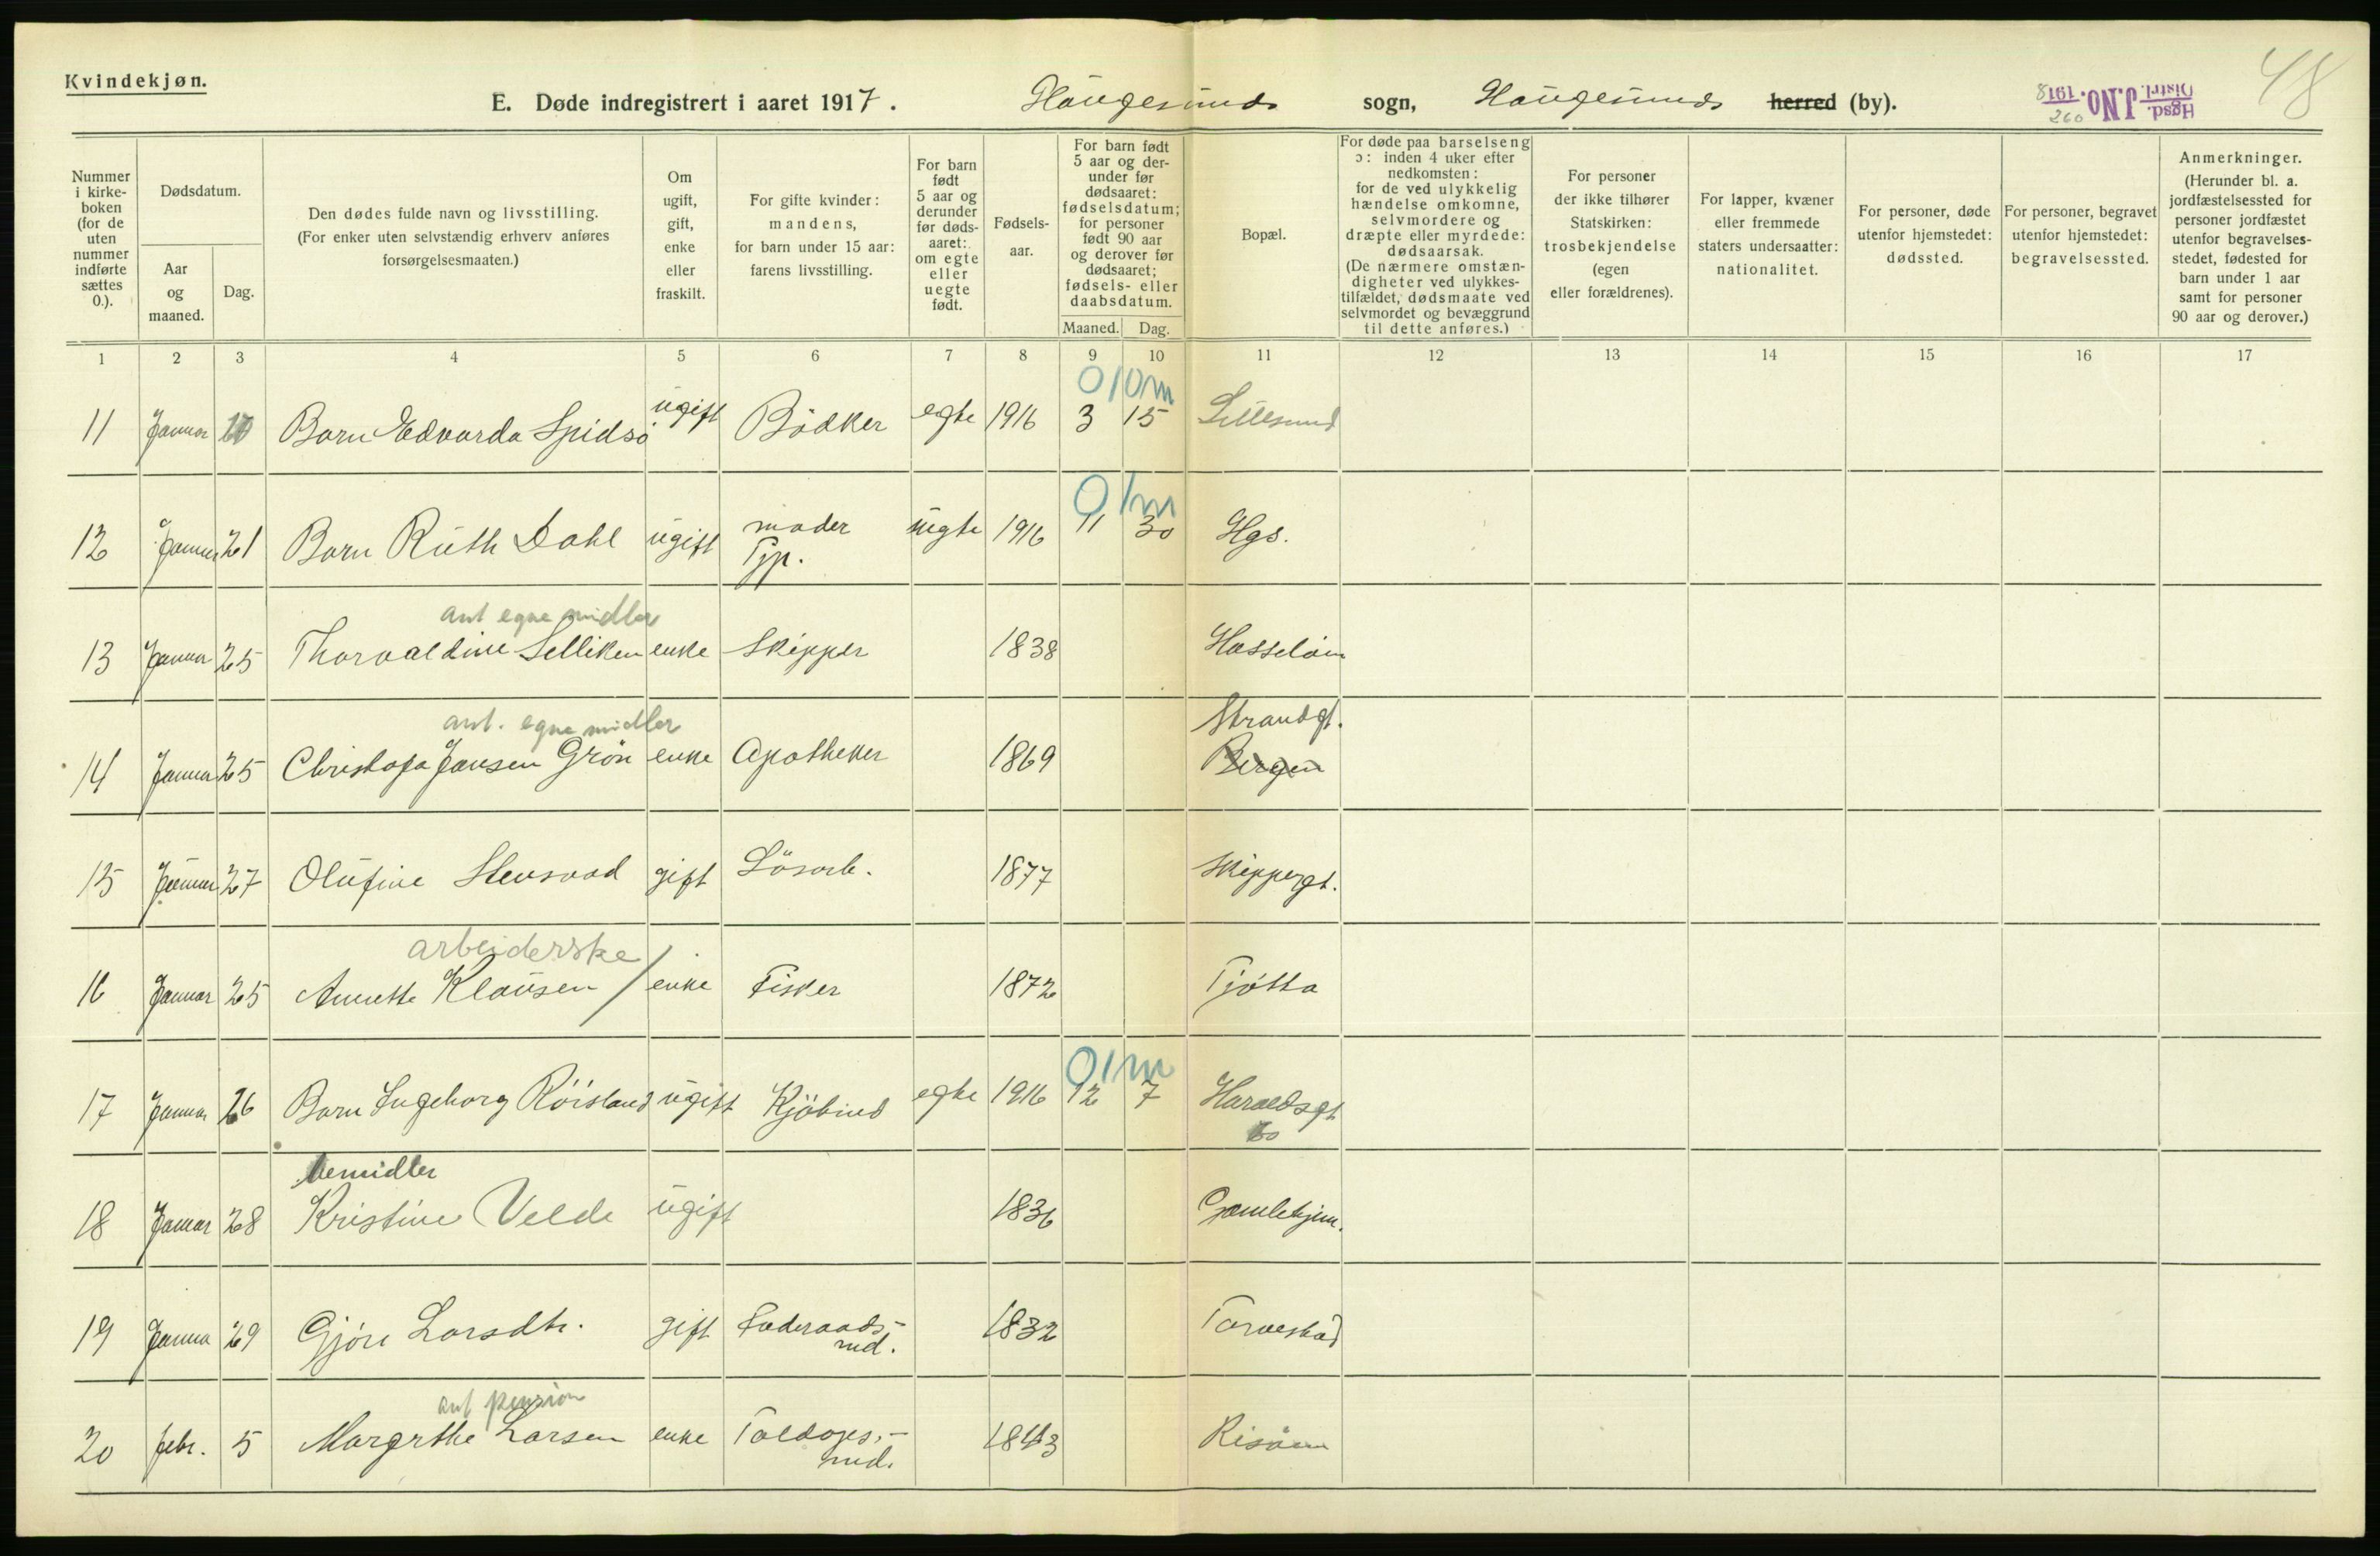 Kvindekjøn.
E. Døde indregistrert i aaret 1917. Haugesunds sogn, Haugesunds herred (by).
Hgsd. Distri. J.NO. 260 1918
48
Nummer i kirkeboken (for de uten nummer indførte sættes 0.).
Dødsdatum.
Aar og maaned.
Dag.
Den dødes fulde navn og livsstilling.
(For enker uten selvstændig erhverv anføres
forsørgelsesmaaten.)
Om ugift, gift, enke eller fraskilt.
For gifte kvinder: mandens, for barn under 15 aar: farens livsstilling.
For barn født 5 aar og derunder før dødsaaret: om egte eller uegte født.
Fødselsaar.
For barn født 5 aar og derunder før dødsaaret: fødselsdatum; for personer født 90 aar og derover før dødsaaret; fødsels- eller daabsdatum.
Maaned. Dag.
Bopæl.
For døde paa barselseng ɔ: inden 4 uker efter nedkomsten: for de ved ulykkelig hændelse omkomne, selvmordere og dræpte eller myrdede: dødsaarsak. (De nærmere omstændigheter ved ulykkestilfældet, dødsmaate ved selvmordet og bevæggrund til dette anføres.)
For personer der ikke tilhører Statskirken: trosbekjendelse (egen eller forældrenes).
For lapper, kvæner eller fremmede staters undersaatter: nationalitet.
For personer, døde utenfor hjemstedet: dødssted.
For personer, begravet utenfor hjemstedet: begravelsessted.
Anmerkninger. (Herunder bl. a. jordfæstelsessted for personer jordfæstet utenfor begravelsesstedet, fødested for barn under 1 aar samt for personer 90 aar og derover.)
1 2 3 4 5 6 7 8 9 10 11 12 13 14 15 16 17
0 10 m
11 Januar 20 Barn Edvarda Spidsö ugift Bödker egte 1916 3 15 Lillesund
0 1 m
12 Januar 21 Barn Ruth Dahl ugift moder Tjp. uegte 1916 11 30 Hgs.
ant egne midler
13 Januar 25 Thorvaldine Selliken enke Skipper 1838 Hasseløen
ant. egne midler
Strandgt.
14 Januar 25 Christofa Jansen Grön enke Apotheker 1869 Bergen
15 Januar 27 Olufine Stensvad gift Lösarb. 1877 Skippergt.
arbeiderske
16 Januar 25 Annette Klausen / enke Fisker 1872 Tjøtta
0 1 m
17 Januar 26 Barn Ingeborg Röisland ugift Kjöbmd egte 1916 12 7 Haraldsgt
bemidler
18 Januar 28 Kristine Velde ugift 1836 Gamlehjem.
19 Janua 29 Gjöri Larsdtr. gift Foderaads-
md. 1832 Torvestad
ant pension
20 febr. 5 Margrthe Larsen enke Toldops.-
md. 1843 Risöen